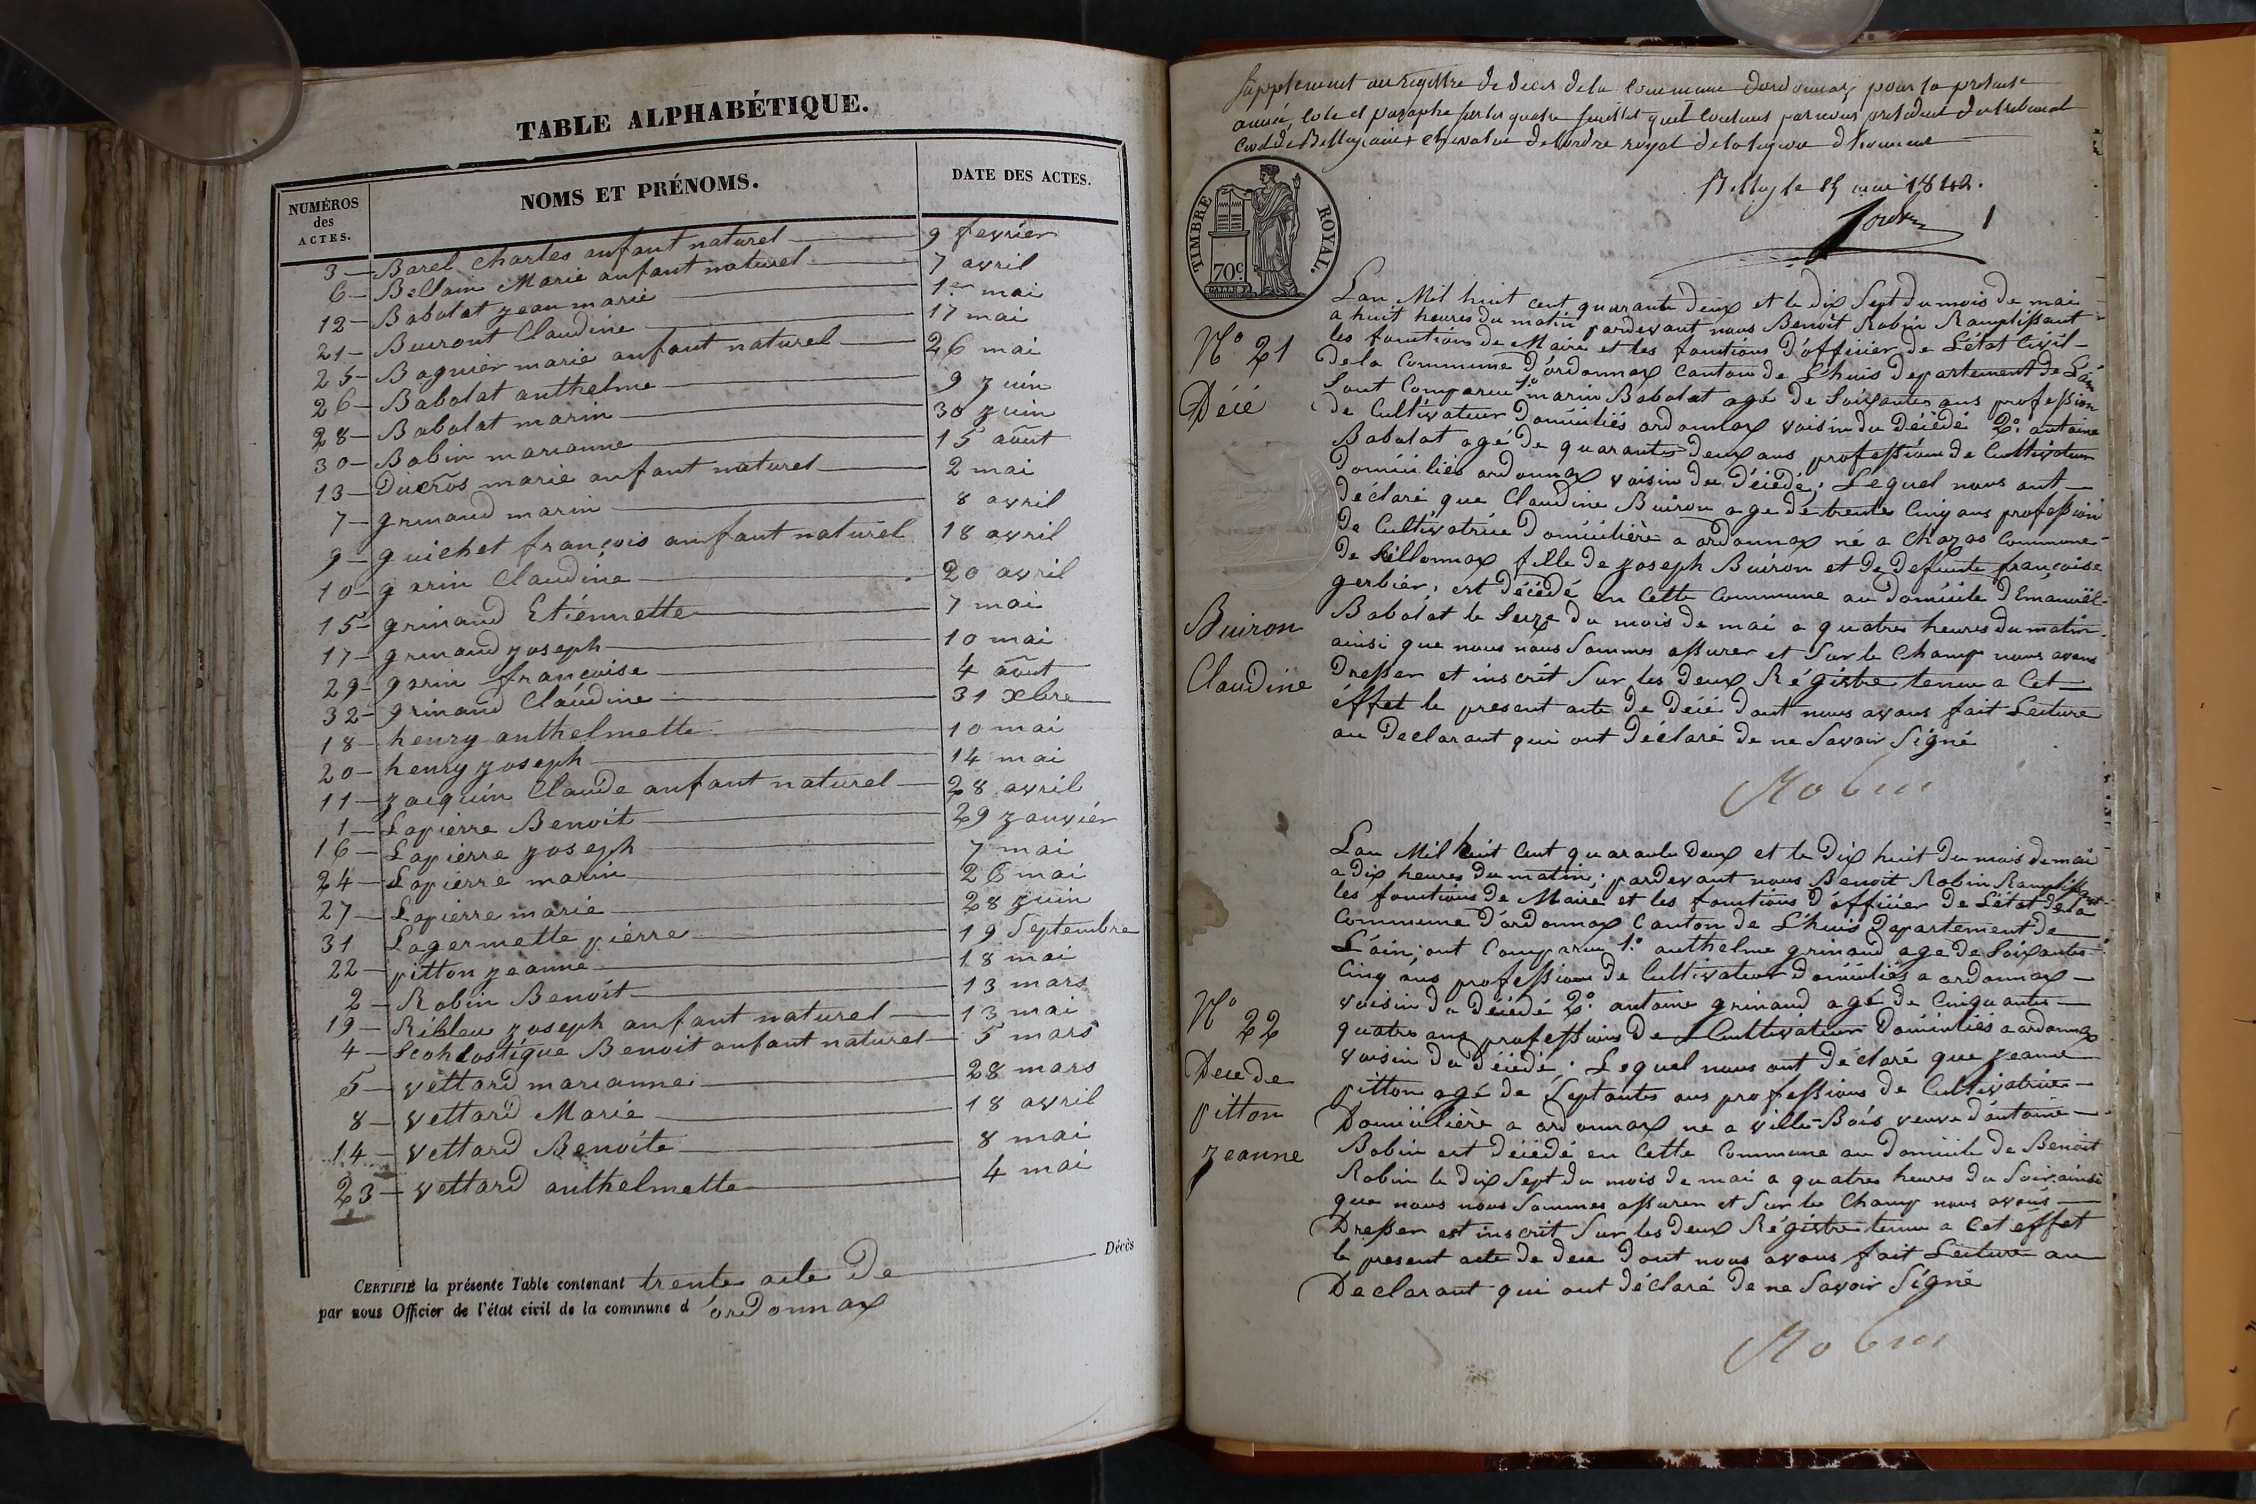 TABLE ALPHABÉTIQUE.
NUMÉROS des ACTES. NOMS ET PRÉNOMS. DATE DES ACTES.
3 — Barel charles anfant naturel — 9 fevrier
6 — Bellain Marie anfant naturel — 7 avril
12 — Babolat jean marie — 1er mai
21 — Buiront Claudine — 17 mai
25 — Bagnier marie anfant naturel — 26 mai
26 — Babolat anthelme — 9 juin
28 — Babolat marin — 30 juin
30 — Bobin marianne — 15 août
13 — Ducros marie anfant naturel — 2 mai
7 — grinand marin — 8 avril
9 — guichet françois anfant naturel 18 avril
10 — garin Claudine — 20 avril
15 — grinand Etiénnette — 7 mai
17 — grinand joseph — 10 mai
29 — garin françoise — 4 août
32 — grinand Claudine — 31 Xbre
18 — henry anthelmette — 10 mai
20 — henry joseph — 14 mai
11 — jacquin Claude anfant naturel — 28 avril
1 — Lapierre Benoit — 29 janviér
16 — Lapierre joseph — 7 mai
24 — Lapierre marin — 26 mai
27 — Lapierre marie — 28 juin
31 Lagermette piérre — 19 Septembre
22 — pitton jeanne — 18 mai
2 — Robin Benoit — 13 mars
19 — Ribleu joseph anfant naturel — 13 mai
4 — Scohlostique Benoit anfant naturel — 5 mars
5 — vettard marianne — 28 mars
8 — vettard Marie — 18 avril
14 — vettard Benoite — 8 mai
23 — vettard anthelmette — 4 mai
CERTIFIÉ la présente Table contenant trente acte de — Décès
par nous Officier de l'état civil de la commune d'ordonnax
Supplement au registre de deces de la commune dordonnax pour la presente
année, coté et paraphé sur les quatre feuillet quil contient par nous president du tribunal
civil de Belley, chevalier de l'ordre royal de la legion d'honneur
Belley le 15 mai 1842.
1
TIMBRE ROYAL.
70c.
Lan Mil huit cent quarante deux et le dix Sept du mois de mai
a huit heures du matin pardevant nous Benoit Robin Ramplissant
les fonctions de Maire et les fonctions d'officier de L'état Civil
N° 21
de la Commune d'ordonnax Canton de Lhuis departement de Lain
Décé
Sont Comparu 1° marin Babolat agé de Soixantes ans profession
de Cultivateur domiciliés ordonnax voisin du décédé 2° antoine
Babolat agé de quarantes deux ans profession de Cultivateur
domiciliés ordonnax voisin du décédé; Lequel nous ont
déclaré que Claudine Buiron age de trentes Cinq ans profession
de Cultivatrice domicilière a ordonnax né a Chazas Commune
de Sillonnax fille de joseph Buiron et de defunte françoise
gerbier, est décédé en Cette Commune au domicile d'Emanuél
Buiron
Babolat le Seize du mois de mai a quatres heures du matin
ainsi que nous nous Sommes assurer et Sur le Champ nous avons
Claudine
Dresser et inscrit Sur les deux Régistre tenu a Cet
éffet le present acte de décé dont nous avons fait Lecture
au Declarant qui ont déclaré de ne Savoir Signé
Robin
Lan Mil huit Cent quarante deux et le Dix huit du mois de mai
a dix heures du matin; pardevant nous Benoit Robin Ramplissant
les fonctions de Maire et les fonctions d'officier de L'état de la
Commune d'ordonnax Canton de Lhuis Departement de
L'ain; ont Comparu 1° anthelme grinand age de Soixantes
Cinq ans profession de Cultivateur domiciliés a ordonnax
N° 22
voisin du décédé 2° antoine grinand agé de Cinquantes
quatre ans profession de Cultivateur domiciliés a ordonnax
voisin du décédé; Lequel nous ont déclaré que jeanne
Decede
pitton agé de Septantes ans profession de Cultivatrice
pitton
Domicilière a ordonnax né a ville-Bois veuve d'antoine
jeanne
Robin est décédé en Cette Commune au domicile de Benoit
Robin le dix Sept du mois de mai a quatres heures du Soir, ainsi
que nous nous Sommes assurer et Sur le Champ nous avons
Dresser est inscrit Sur les deux Régistre tenu a Cet effet
le present acte de dece dont nous avons fait Lecture au
Declarant qui ont déclaré de ne Savoir Signé
Robin